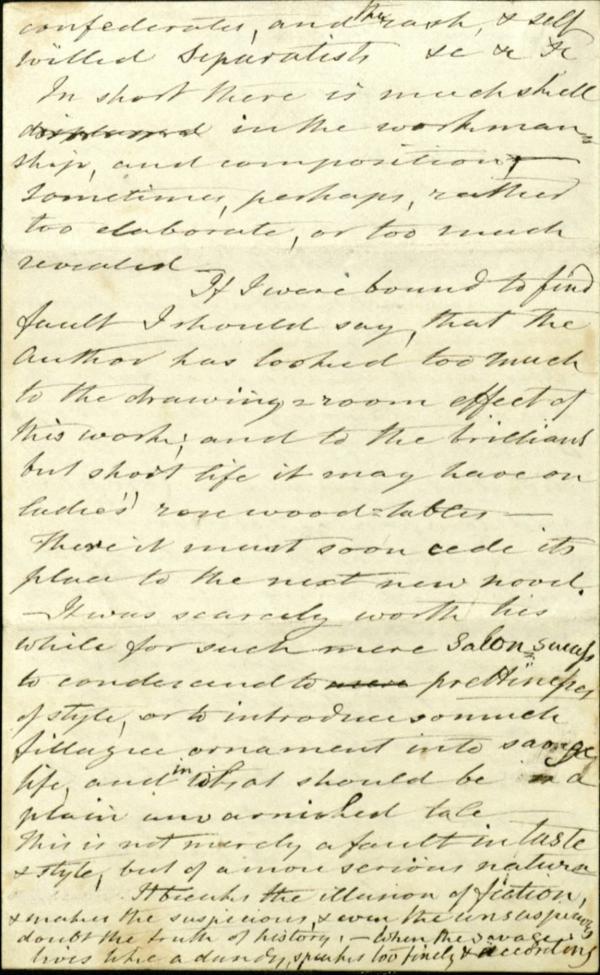 confederates, and the rash, & self
willed Separatists &c &c &c
In short there is much skill
displayed in the workman=
ship, and composition, —
sometimes, perhaps, rather
too elaborate, or too much
revealed —
If I were bound to find
fault I should say, that the
Author has looked too much
to the drawing=room effect of
this work; and to the brilliant
but short life it may have on
ladies' rosewood=tables —
There it must soon cede its
place to the next new novel.
— It was scarcely worth his
while for such mere Salon=
to condescend to prettinesses
of style, or to introduce so much
fillagree ornament into savage
life, and in what should be a
plain unvarnished tale —
This is not merely a fault in taste
& style, but of a more serious nature
It breaks the illusion of fiction,
& makes the suspicious, & even the unsuspicious
doubt the truth of history. — When the savage
lives like a dandy, speaks too finely & according